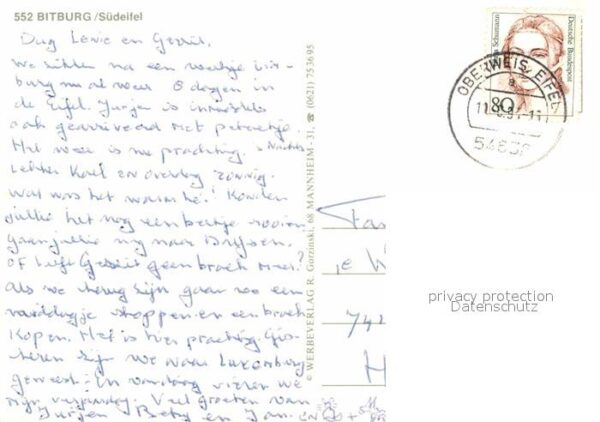 552 BITBURG /Südeifel
Dag Lenie en Gerrit,
We zitten na een weekje
burg nu al weer 8 dagen in
de Eifel. Jurjen is inmiddels
ook gearriveerd met petertje.
Het weer is nu prachtig. 's Nachts
lekker koel en overdag zonnig.
Wat was het warm hé! Konden
jullie het nog een beetje rooien
Gaan jullie nog naar
of heeft Gerrit geen broek meer?
Als we terug zijn gaan we een
middagje shoppen en een broek
kopen. Het is hier prachtig. Gis-
teren zijn we naar Luxemburg
geweest. En vandaag vieren we
mijn verjaardag. Veel groeten van
Jurjen Betsy en Jan
© WERBEVERLAG R. Gorzinski, 68 MANNHEIM - 31, ☎ (0621) 75 36 95
Fa
74
H
Schumann
Deutsche Bundespost
80
OBERWEIS, EIFEL
a
privacy protection
Datenschutz